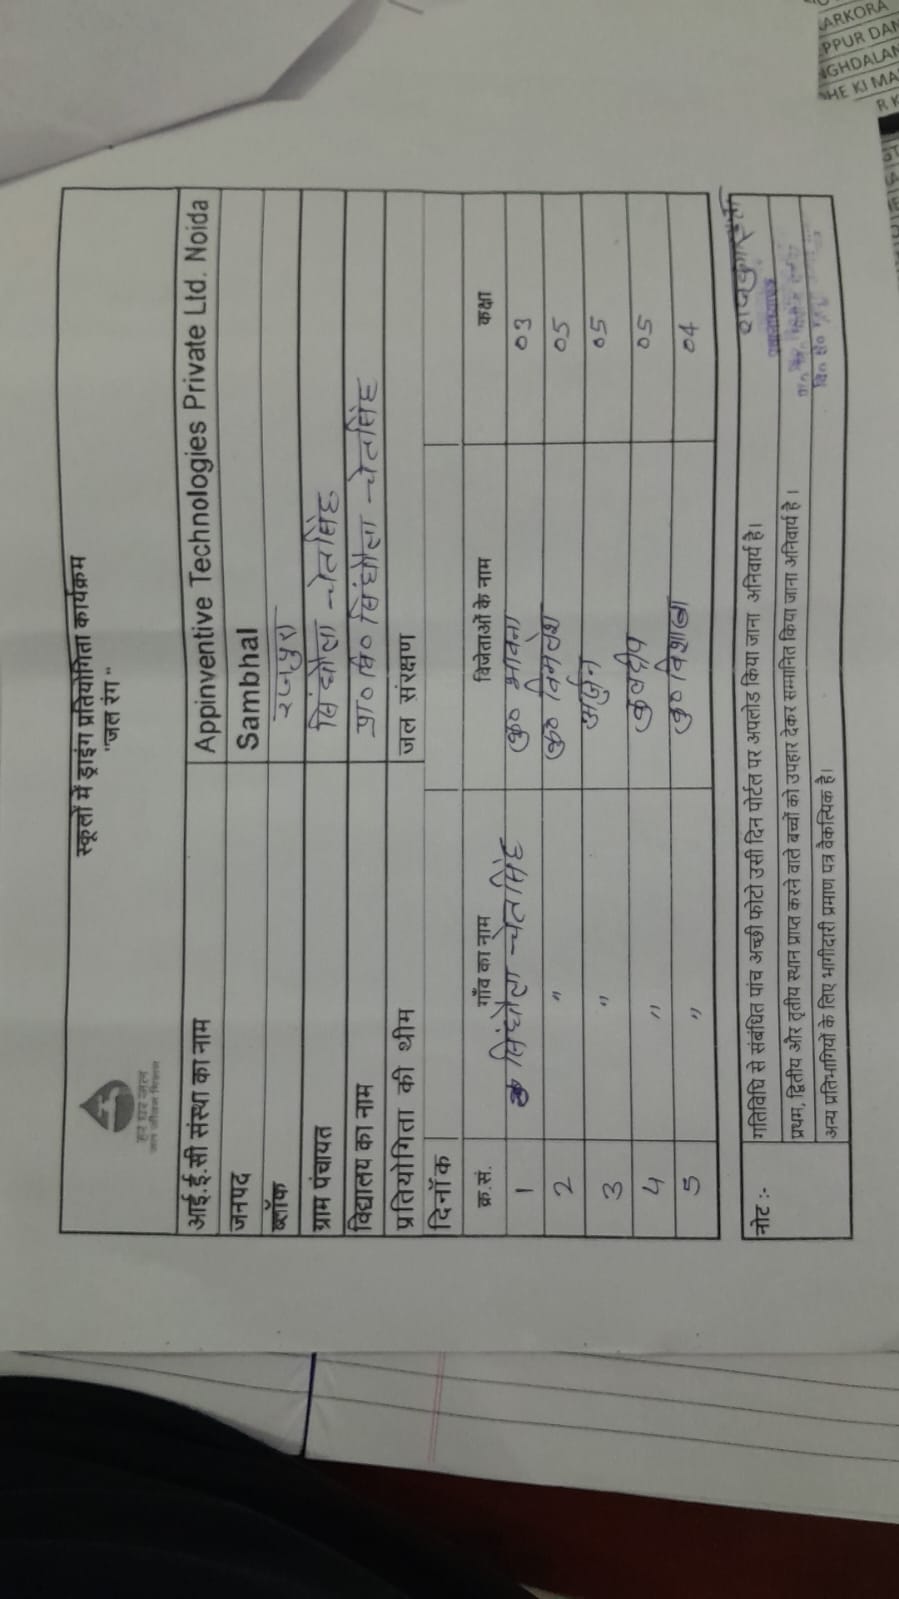 स्कूलों में ड्राइंग प्रतियोगिता कार्यक्रम
"जल रंग"
हर घर जल
जल जीवन मिशन
आई.ई.सी संस्था का नाम Appinventive Technologies Private Ltd. Noida
जनपद Sambhal
ब्लॉक रजपुरा
ग्राम पंचायत सिंघौला चेतसिंह
विद्यालय का नाम प्रा० वि० सिंघौला चेतसिंह
प्रतियोगिता की थीम जल संरक्षण
दिनाँक
क्र.सं. गाँव का नाम विजेताओं के नाम कक्षा
1 सिंघौला चेतसिंह कु० भावना 03
2 " कु० विमलेश 05
3 " अर्जुन 05
4 " कुलदीप 05
5 " कु० विशाखा 04
नोट :- गतिविधि से संबंधित पांच अच्छी फोटो उसी दिन पोर्टल पर अपलोड किया जाना अनिवार्य है।
प्रथम, द्वितीय और तृतीय स्थान प्राप्त करने वाले बच्चों को उपहार देकर सम्मानित किया जाना अनिवार्य है ।
अन्य प्रतिभागियों के लिए भागीदारी प्रमाण पत्र वैकल्पिक है।
ARKORA
PPUR DAN
GHDALAN
HE KI MA
R K